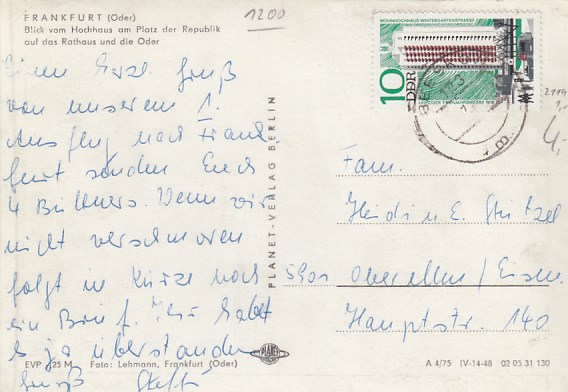 FRANKFURT (Oder)
Blick vom Hochhaus am Platz der Republik
auf das Rathaus und die Oder
1200
Einen herzl. Gruß
von unserem 1.
Ausflug nach Frank
furt senden Euch
4 Büttners. Wenn wir
nicht verschmoren
folgt in Kürze noch
ein Brief. Ihr habt
es ja überstanden
Gruß
EVP 25 M Foto: Lehmann, Frankfurt (Oder)
PLANET-VERLAG BERLIN
PLANET
WOHNHOCHHAUS WINTERGARTENSTRASSE
10
DDR
LEIPZIGER FRÜHJAHRSMESSE 1976
2119
1,-
4,-
Fam.
Heidi u. E. Stützel
5901 Oberellen / Eisen.
Hauptstr. 140
A 4/75 IV-14-48 02 05 31 130